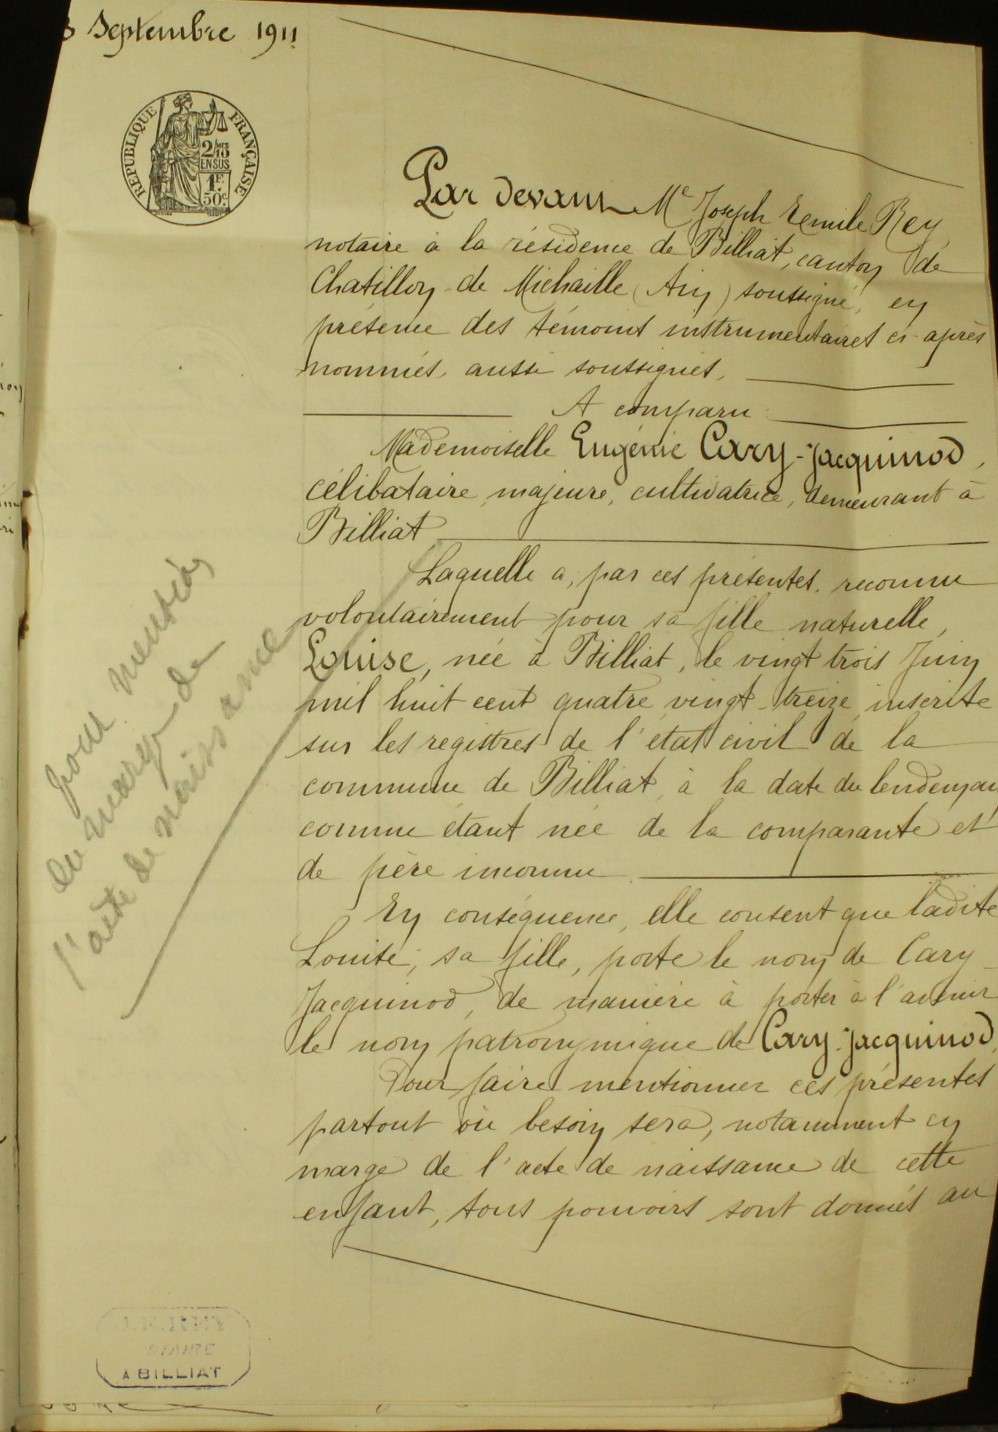 Septembre 1911
RÉPUBLIQUE FRANÇAISE
2/10
EN SUS
1F.
50c.
Par devant Me Joseph Eemile Rey,
notaire à la résidence de Billiat, canton de
Chatillon-de Michaille (Ain) soussigné, en
présence des témoins instrumentaires ci-après
nommés, aussi soussignés.
A comparu
Mademoiselle Eugénie Cary-Jacquinod,
célibataire majeure, cultivatrice, demeurant à
Billiat
Laquelle a, par ces présentes, reconnu
volontairement pour sa fille naturelle,
Louise, née à Billiat, le vingt trois Juin
mil huit cent quatre vingt treize, inscrite
sur les registres de l'état civil de la
commune de Billiat, à la date du lendemain,
comme étant née de la comparante et
de père inconnu
En conséquence, elle consent que ladite
Louise, sa fille, porte le nom de Cary-
Jacquinod, de manière à porter à l'avenir
le nom patronymique de Cary-Jacquinod.
Pour faire mentionner ces présentes
partout où besoin sera, notamment en
marge de l'acte de naissance de cette
enfant, tous pouvoirs sont donnés au
pour mention
en marge de
l'acte de naissance
J. E. REY
NOTAIRE
A BILLIAT